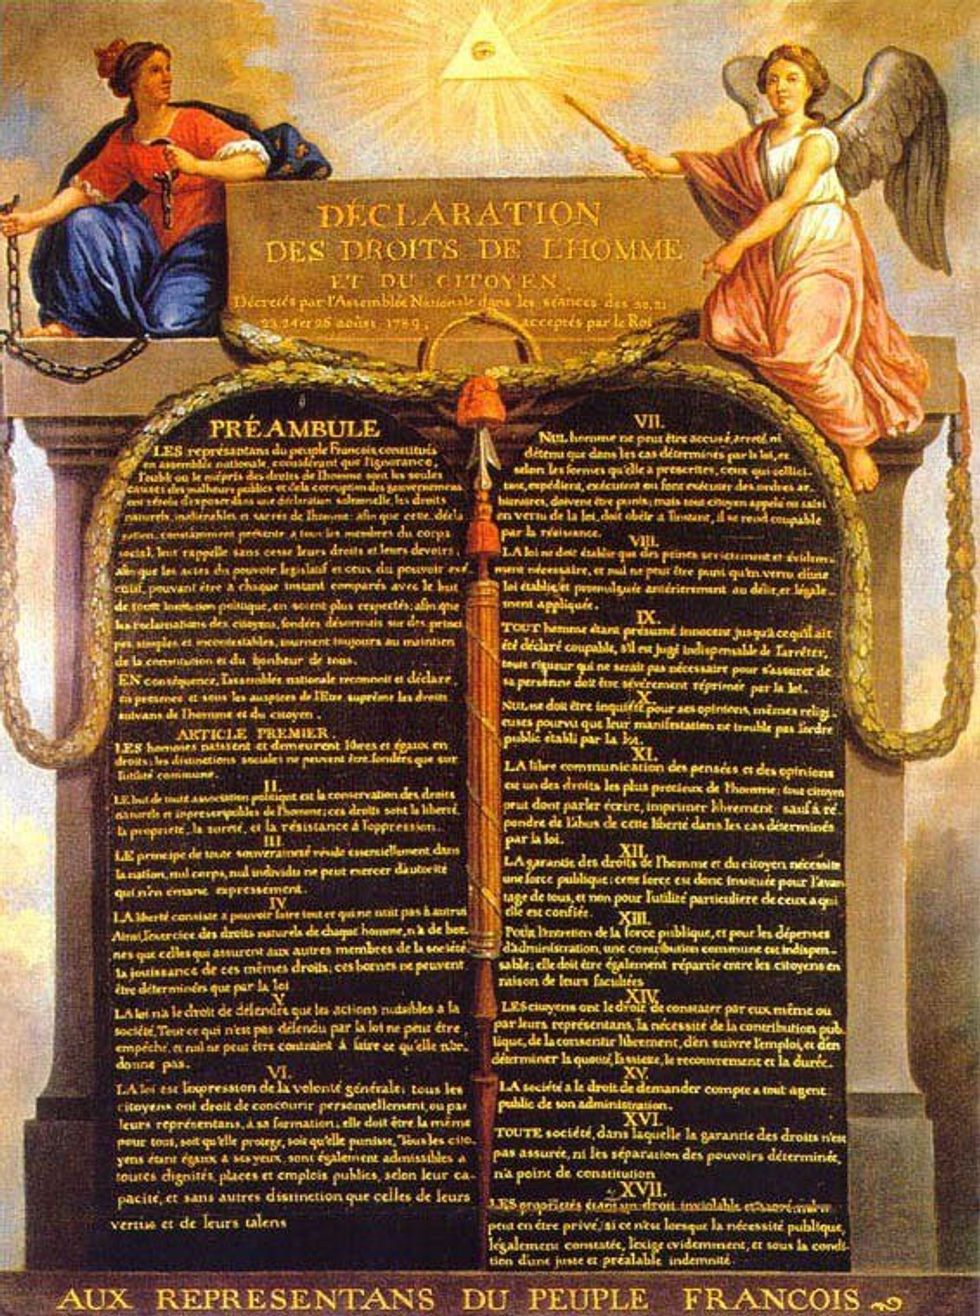 DÉCLARATION
DES DROITS DE L'HOMME
ET DU CITOYEN,
Décretés par l'Assemblée Nationale dans les séances des 20, 21
23, 24 et 26 aoûst 1789, acceptés par le Roi
PRÉAMBULE
LES représantans du peuple François, constitués
en assemblée nationale, considérant que l'ignorance,
l'oubli ou le mépris des droits de l'homme sont les seules
causes des malheurs publics et de la corruption des gouvernemens
ont résolu d'exposer dans une déclaration solemnelle, les droits
naturels, inaliénables et sacrés de l'homme; afin que cette décla
ration, constamment présente a tous les membres du corps
social, leur rappelle sans cesse leurs droits et leurs devoirs,
afin que les actes du pouvoir législatif et ceux du pouvoir exé
cutif, pouvant être à chaque instant comparés avec le but
de toute institution politique, en soient plus respectés; afin que
les réclamations des citoyens, fondées désormais sur des princi
pes simples et incontestables, tournent toujours au maintien
de la constitution et du bonheur de tous.
EN conséquence, l'assemblée nationale reconnoit et déclare
en presence et sous les auspices de l'Etre suprême les droits
suivans de l'homme et du citoyen.
ARTICLE PREMIER.
LES hommes naissent et demeurent libres et égaux en
droits; les distinctions sociales ne peuvent être fondées que sur
l'utilité commune.
II.
LE but de toute association politique est la conservation des droits
naturels et imprescriptibles de l'homme; ces droits sont la liberté,
la propriété, la sureté, et la résistance à l'oppression.
III.
LE principe de toute souveraineté réside essentiellement dans
la nation, nul corps, nul individu ne peut exercer d'autorité
qui n'en émane expressement.
IV.
LA liberté consiste a pouvoir faire tout ce qui ne nuit pas à autrui
Ainsi, l'exercice des droits naturels de chaque homme, n'a de bor-
nes que celles qui assurent aux autres membres de la société
la jouissance de ces mêmes droits; ces bornes ne peuvent
être déterminées que par la loi
V.
LA loi n'a le droit de défendre que les actions nuisibles à la
société. Tout ce qui n'est pas défendu par la loi ne peut être
empêché, et nul ne peut être contraint à faire ce qu'elle n'or-
donne pas.
VI.
LA loi est l'expression de la volonté générale; tous les
citoyens ont droit de concourir personnellement, ou par
leurs représentans, à sa formation; elle doit être la même
pour tous, soit qu'elle protege, soit qu'elle punisse. Tous les cito-
yens étant égaux à ses yeux, sont également admissibles à
toutes dignités, places et emplois publics, selon leur ca-
pacité, et sans autres distinction que celles de leurs
vertus et de leurs talens
VII.
NUL homme ne peut être accusé, arreté ni
détenu que dans les cas déterminés par la loi, et
selon les formes qu'elle a prescrites, ceux qui sollici-
tent, expédient, exécutent ou font exécuter des ordres ar-
bitraires, doivent être punis; mais tout citoyen appelé ou saisi
en vertu de la loi, doit obéir à l'instant, il se rend coupable
par la résistance.
VIII.
LA loi ne doit établir que des peines strictement et évidem-
ment nécessaire, et nul ne peut être puni qu'en vertu d'une
loi établie, et promulguée antérierement au délit, et légale-
ment appliquée.
IX.
TOUT homme étant présumé innocent jusqu'à ce qu'il ait
été déclaré coupable, s'il est jugé indispensable de l'arrêter,
toute rigueur qui ne serait pas nécessaire pour s'assurer de
sa personne doit être sévèrement réprimée par la loi.
X.
NUL ne doit être inquiété pour ses opinions, mêmes religi-
euses pourvu que leur manifestation ne trouble pas l'ordre
public établi par la loi.
XI.
LA libre communication des pensées et des opinions
est un des droits les plus precieux de l'homme; tout citoyen
peut dont parler écrire, imprimer librement; sauf à ré-
pondre de l'abus de cette liberté dans les cas déterminés
par la loi.
XII.
LA garantie des droits de l'homme et du citoyen nécessite
une force publique; cette force est donc instituée pour l'avan
tage de tous, et non pour l'utilité particuliere de ceux a qui
elle est confiée.
XIII.
Pour l'entretien de la force publique, et pour les dépenses
d'administration, une contribution commune est indispen-
sable; elle doit être également répartie entre les citoyens en
raison de leurs facultées
XIV.
LES citoyens ont le droit de constater par eux même ou
par leurs représentans, la nécessité de la contribution pub-
lique, de la consentir librement, d'en suivre l'emploi, et d'en
déterminer la quotité, l'assiete, le recouvrement et la durée.
XV.
LA société a le droit de demander compte a tout agent
public de son administration.
XVI.
TOUTE société, dans laquelle la garantie des droits n'est
pas assurée, ni les séparation des pouvoirs déterminée,
n'a point de constitution
XVII.
LES proprietés étant un droit inviolable et sacré, nul ne
peut en être privé, si ce n'est lorsque la nécessité publique,
légalement constatée, l'exige evidemment, et sous la condi-
tion d'une juste et préalable indemnité.
AUX REPRESENTANS DU PEUPLE FRANCOIS